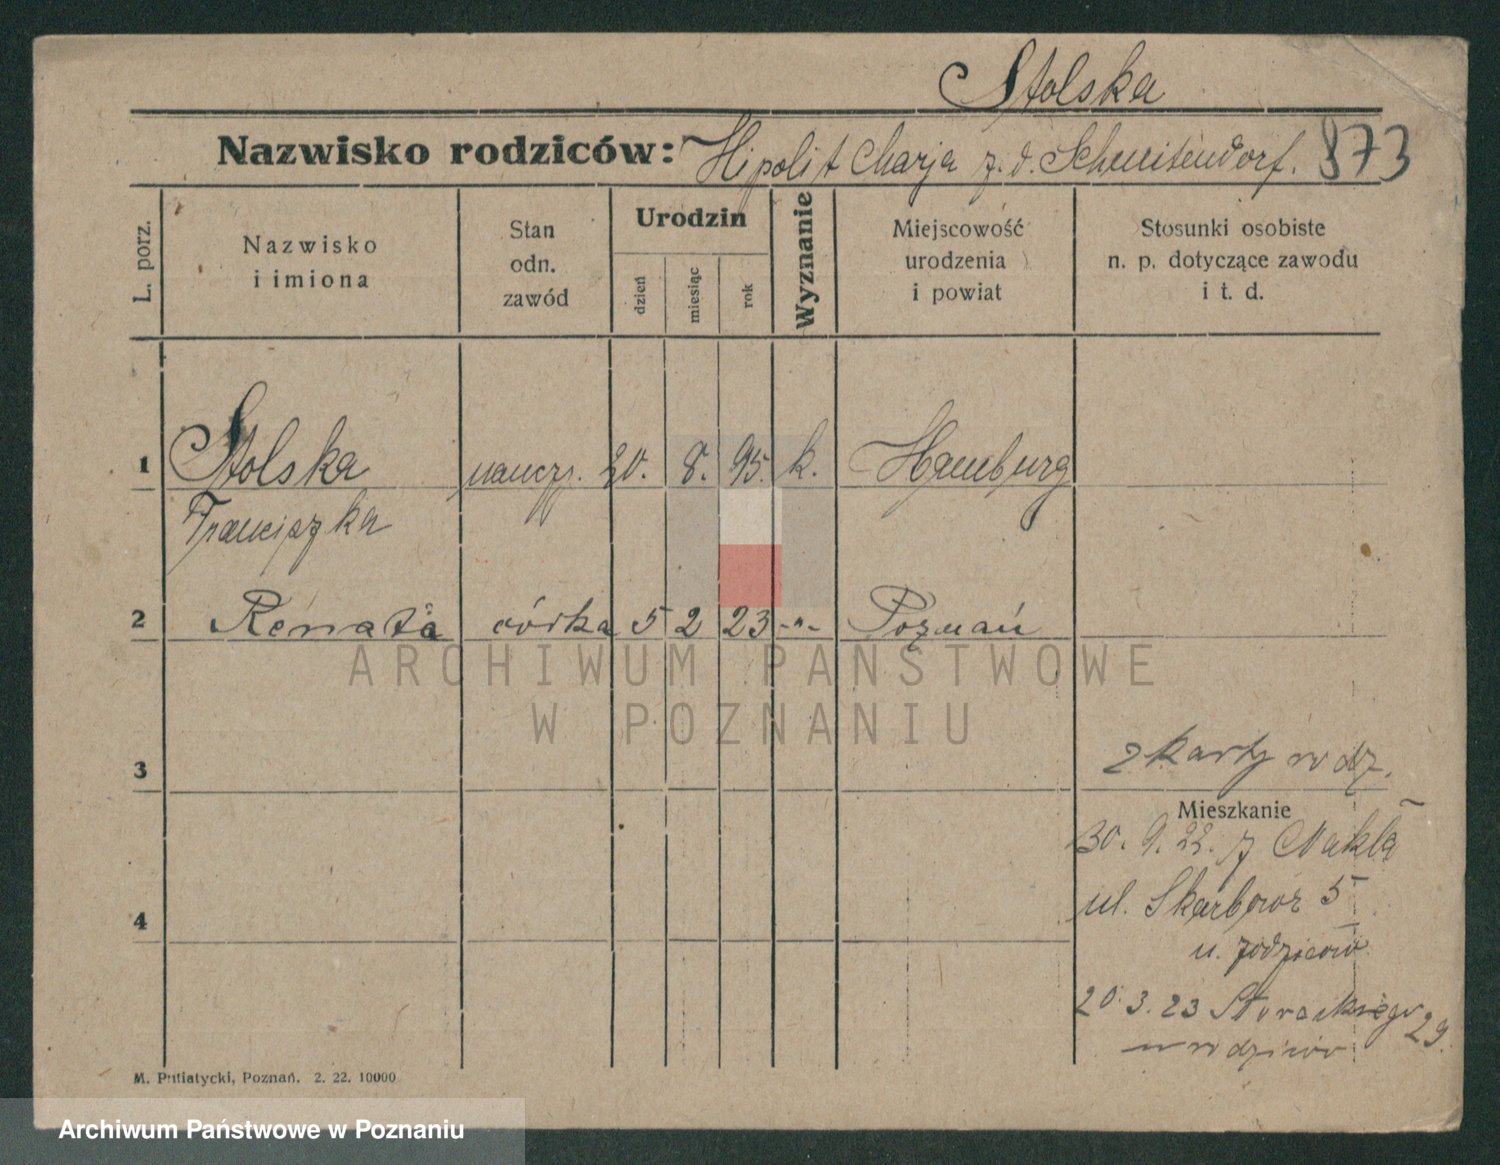 Stolska
Nazwisko rodziców: Hipolit Marja z. d. 873
L. porz.
Nazwisko i imiona
Stan odn. zawód
Urodzin
dzień
miesiąc
rok
Wyznanie
Miejscowość urodzenia i powiat
Stosunki osobiste n. p. dotyczące zawodu i t. d.
1 Stolska naucz. 20. 8. 95. k. Hamburg
Franciszka
2 Renata córka 5 2 23 -"- Poznań
ARCHIWUM PAŃSTWOWE
W POZNANIU
z karty rodz.
3
Mieszkanie
30. 9. 22. z Nakła
ul. Skarbowa 5
4
u. rodziców
20. 3. 23 29.
u rodziców
M. Putiatycki, Poznań. 2. 22. 10000
Archiwum Państwowe w Poznaniu